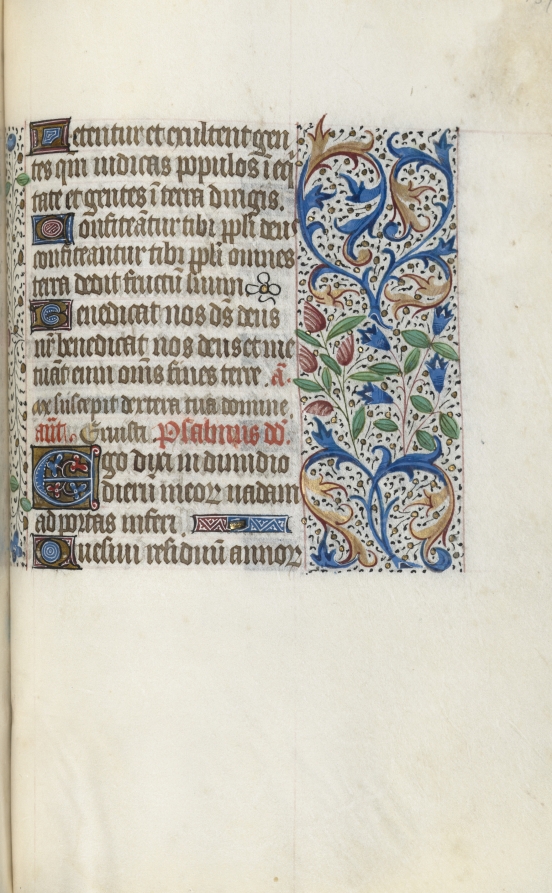 Letentur et exultent gen
tes qm̄ iudicas populos ī eq̄
tate et gentes ī terra dirigis.
Confiteātur tibi ppl̄i deus
confiteantur tibi ppl̄i omnes
terra dedit fructū suum
Benedicat nos ds̄ deus
nr̄ benedicat nos deus et me
tuāt eum om̄s fines terre. a.
Me suscepit dextera tua domine
ant. Eruisti. Psalmus dd.
Ego dixi in dimidio
dierū meoꝝ uadam
ad portas inferi.
Quesiui residuū annoꝝ